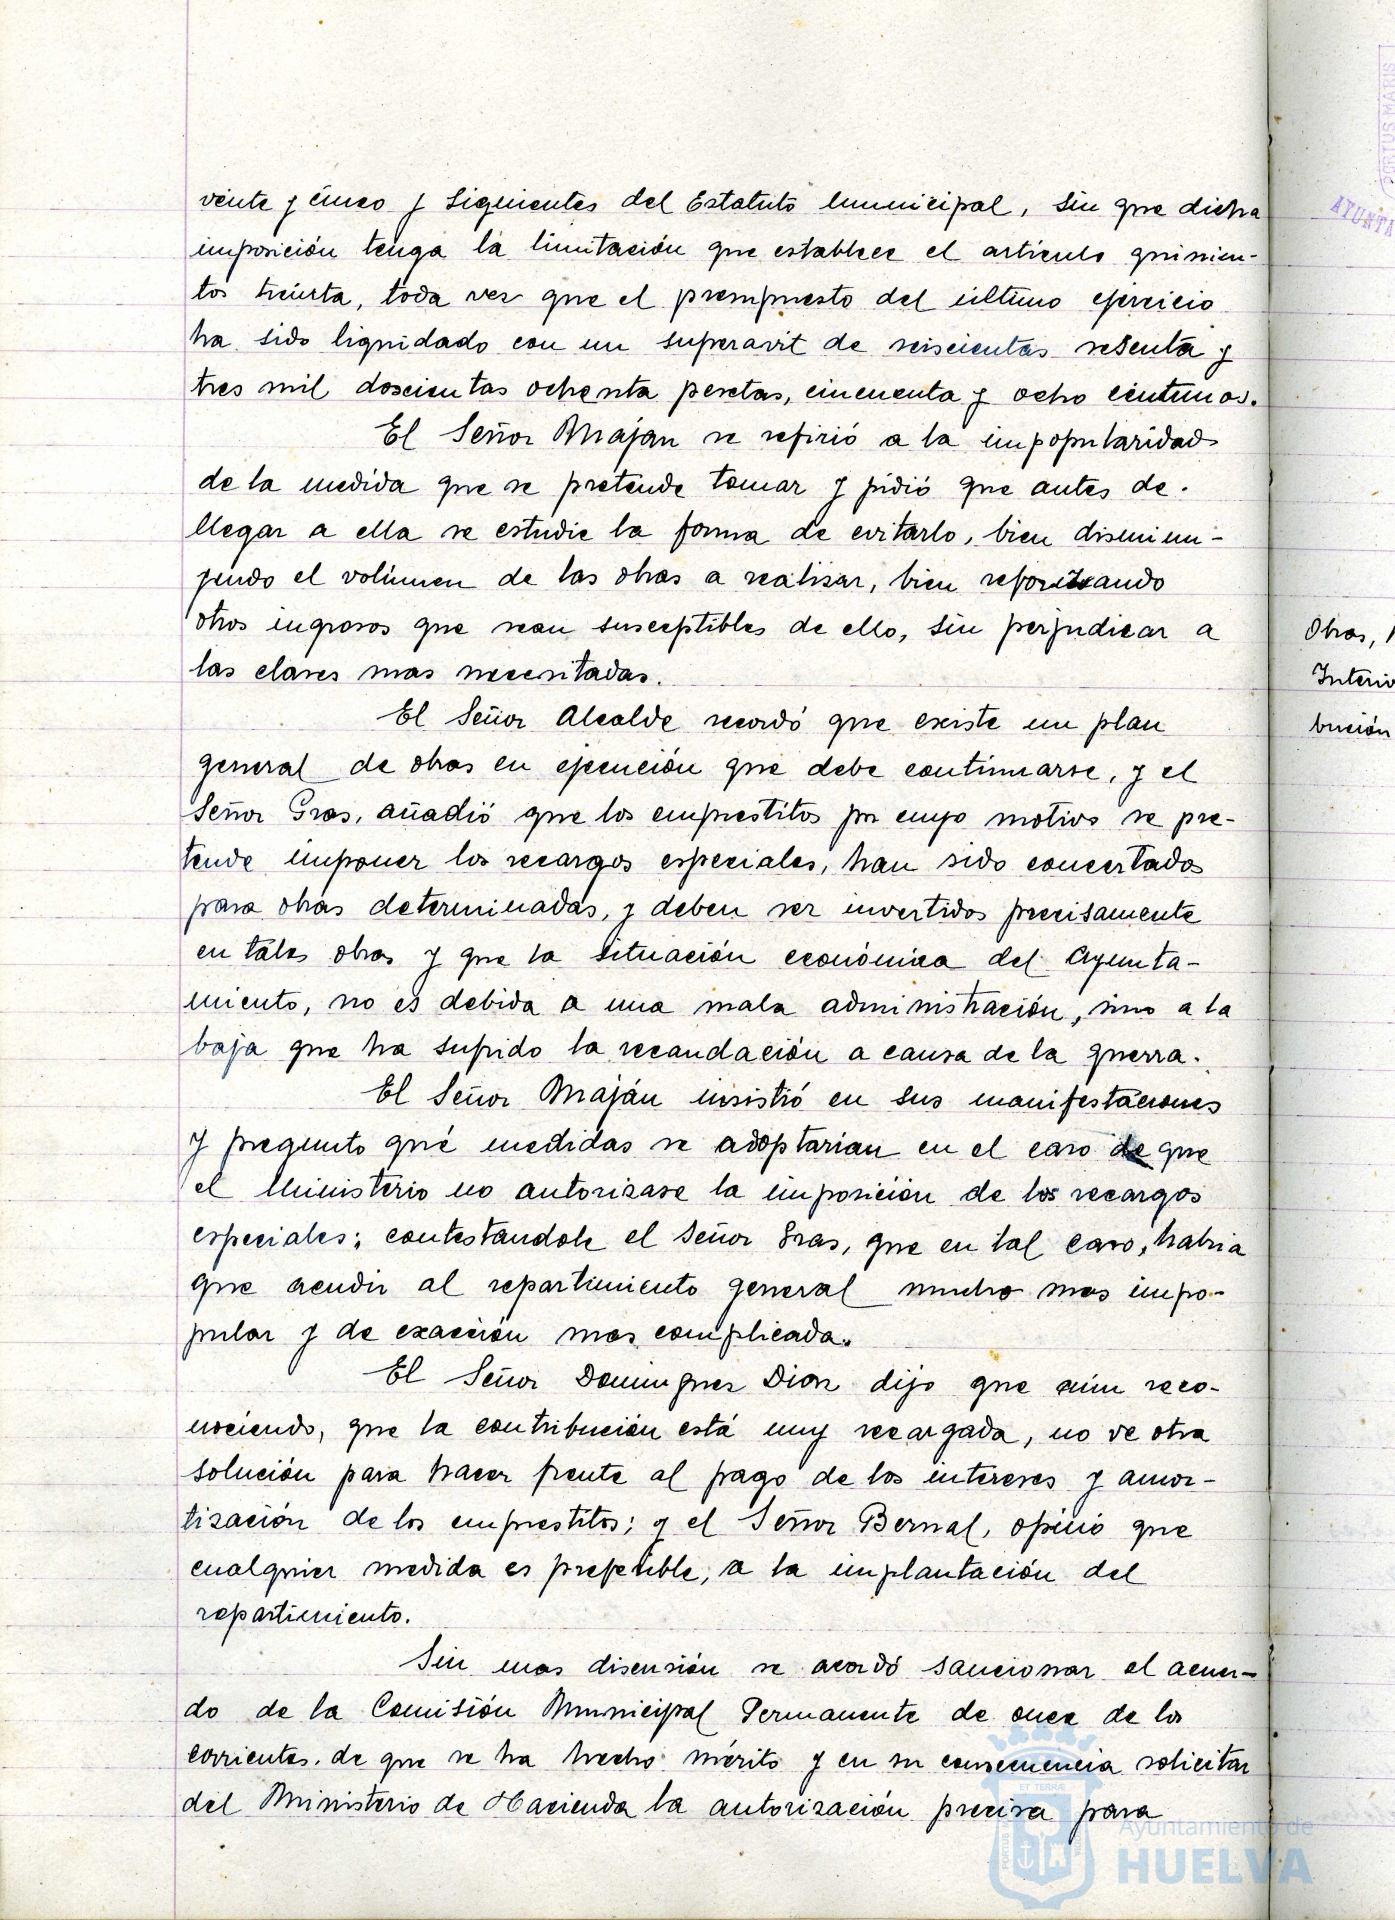 veinte y cinco y siguientes del Estatuto municipal, sin que dicha
imposición tenga la limitación que establece el artículo quinien-
tos treinta, toda vez que el presupuesto del último ejercicio
ha sido liquidado con un superavit de seiscientas sesenta y
tres mil doscientas ochenta pesetas, cincuenta y ocho céntimos.
El Señor Maján se refirió a la impopularidad
de la medida que se pretende tomar y pidió que antes de
llegar a ella se estudie la forma de evitarlo, bien disminu-
yendo el volúmen de las obras a realizar, bien reforzando
otros ingresos que sean susceptibles de ello, sin perjudicar a
las clases mas necesitadas.
El Señor Alcalde recordó que existe un plan
general de obras en ejecución que debe continuarse, y el
Señor Gras, añadió que los emprestitos por cuyo motivo se pre-
tende imponer los recargos especiales, han sido concertados
para obras determinadas, y deben ser invertidos precisamente
en tales obras y que la situación económica del Ayunta-
miento, no es debida a una mala administración, sino a la
baja que ha sufrido la recaudación a causa de la guerra.
El Señor Maján insistió en sus manifestaciones
y pregunto qué medidas se adoptarian en el caso de que
el Ministerio no autorizase la imposición de los recargos
especiales; contestandole el Señor Gras, que en tal caso, habria
que acudir al repartimiento general mucho mas impo-
pular y de exacción mas complicada.
El Señor Dominguez Diaz dijo que aún reco-
nociendo, que la contribución está muy recargada, no ve otra
solución para hacer frente al pago de los intereses y amor-
tización de los emprestitos; y el Señor Bernal, opinó que
cualquier medida es preferible, a la implantación del
repartimiento.
Sin mas discusión se acordó sancionar el acuer-
do de la Comisión Municipal Permanente de once de los
corrientes, de que se ha hecho mérito y en su consecuencia solicitar
del Ministerio de Hacienda la autorización precisa para
Obras,
Interio
bución
PORTUS MARIS
AYUNTA
ET TERRÆ
Ayuntamiento de
HUELVA